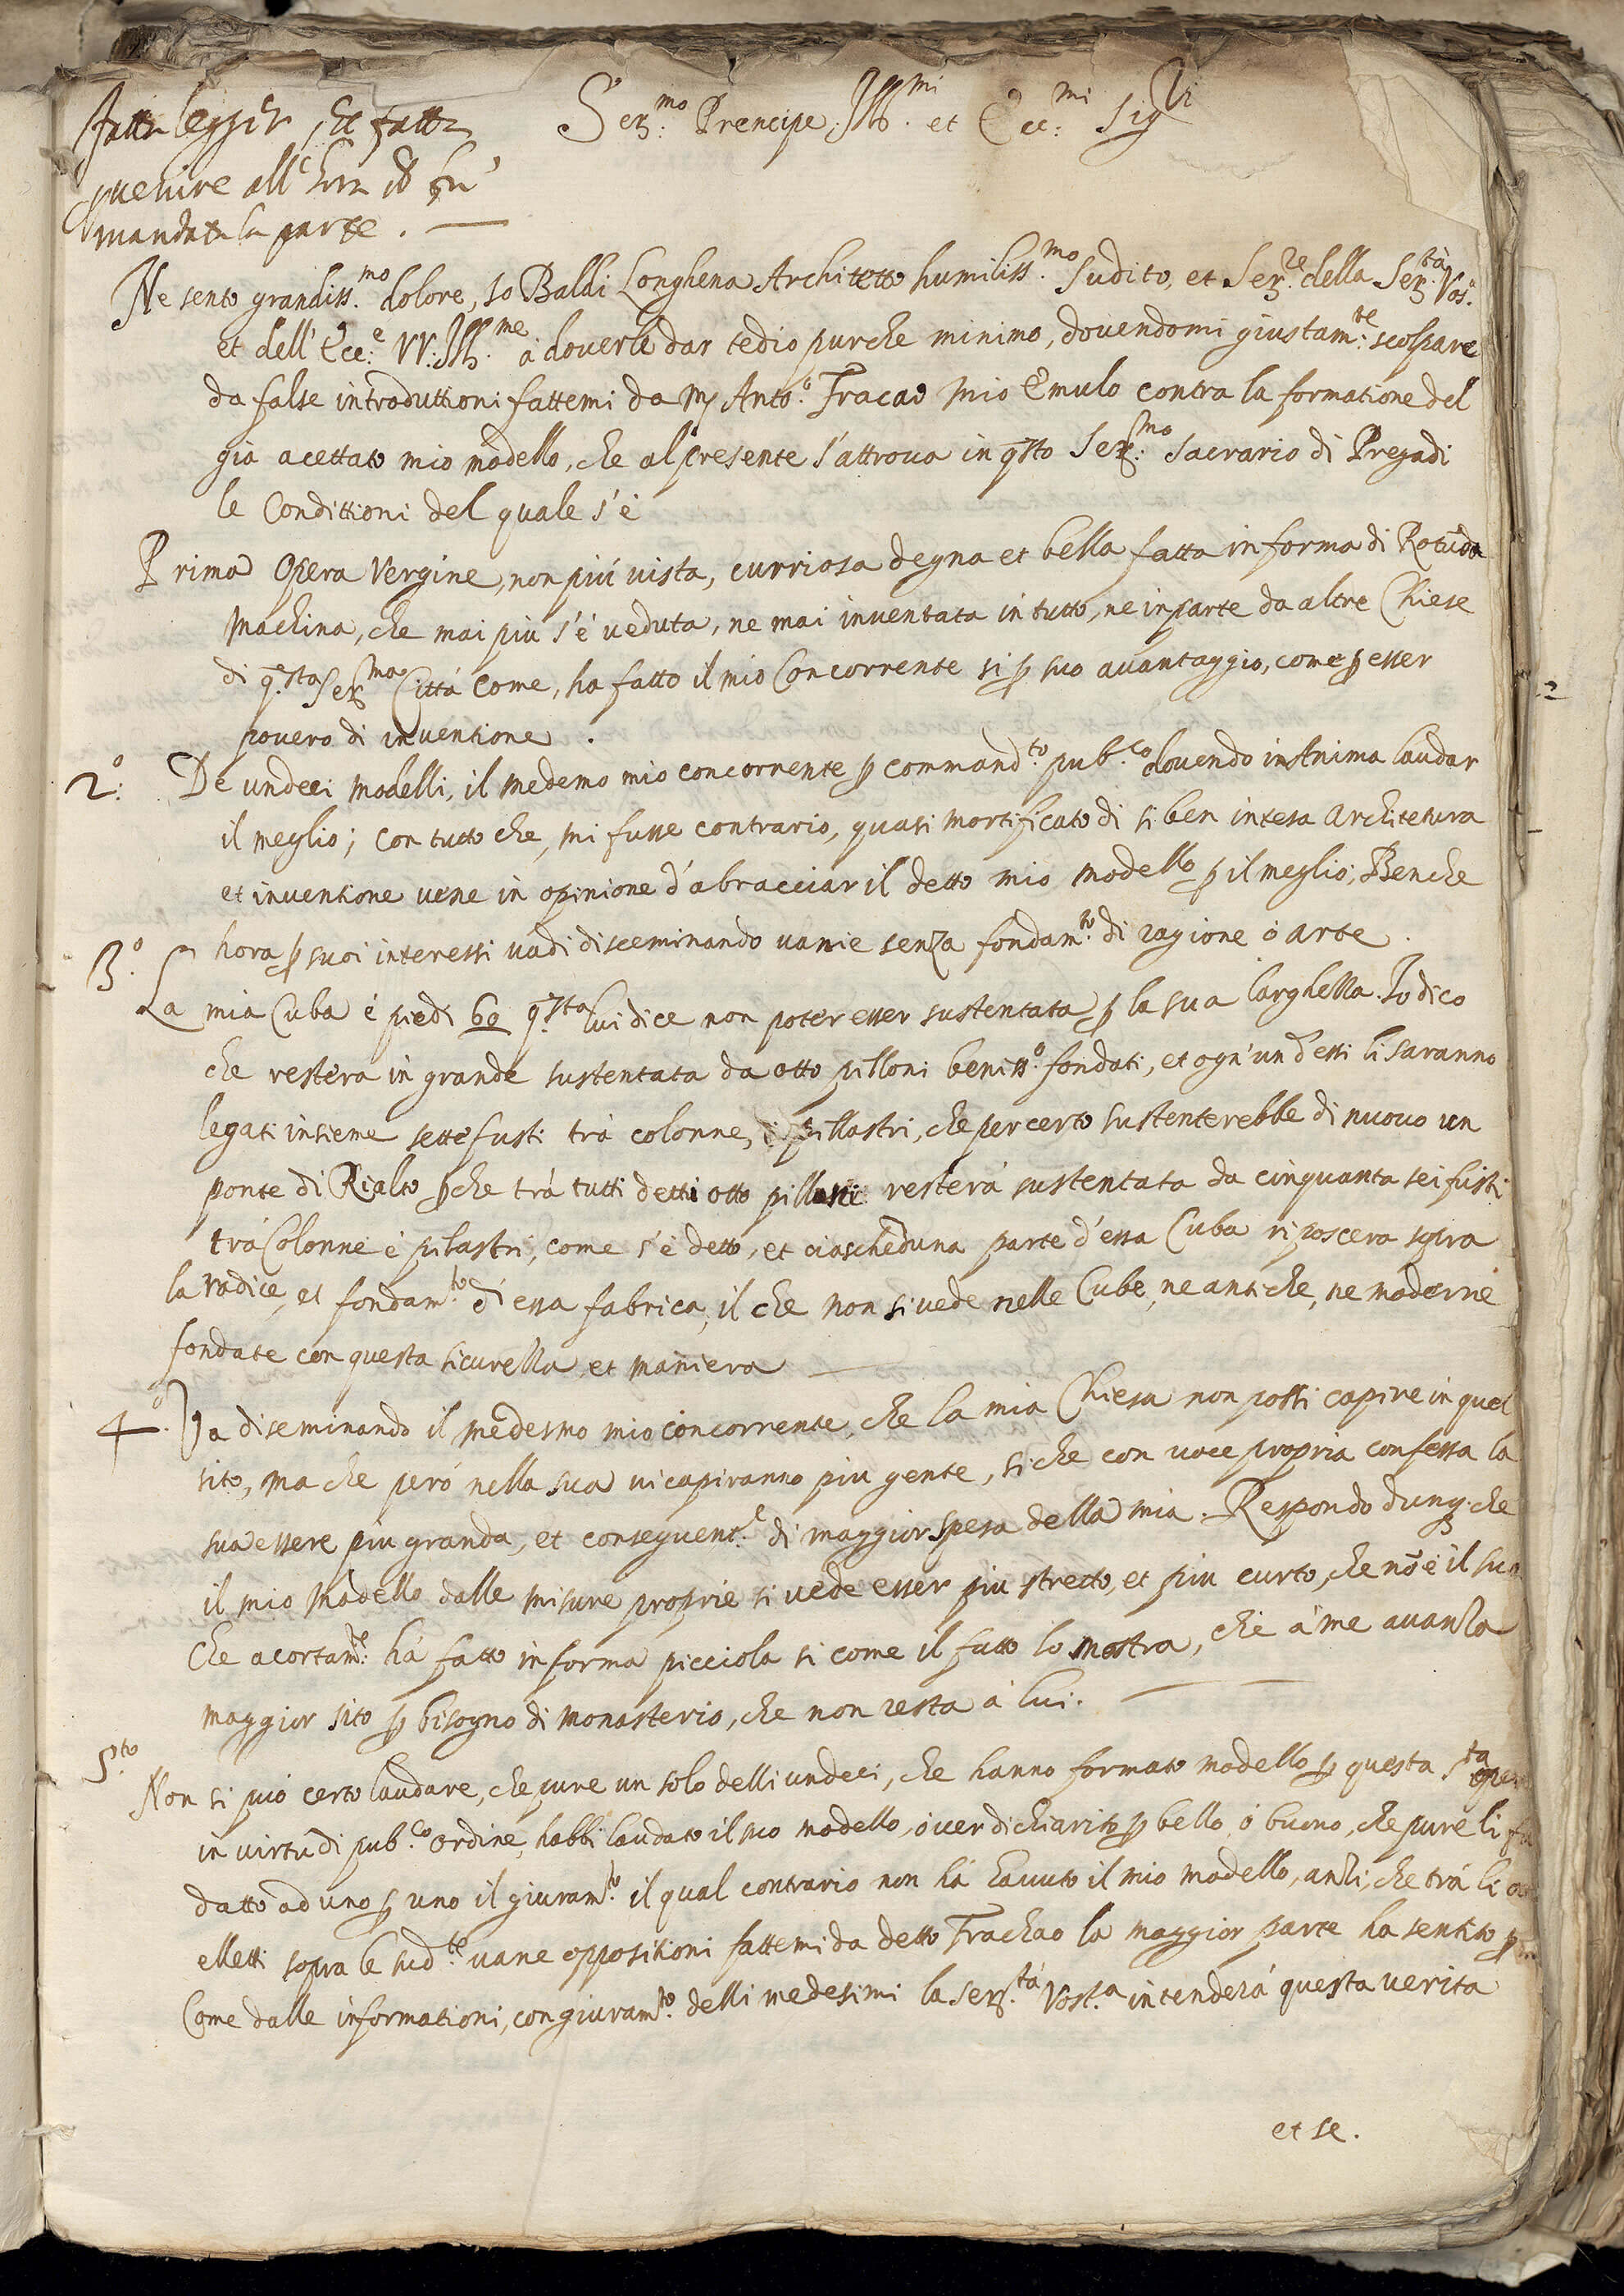 fatta legger, et fatta
venire all'
mandata la parte.
Ser.mo Prencipe, Ill.mi et Ecc.mi Sig.ri
Ne sento grandiss.mo dolore, Io Baldi Longhena Architetto humiliss.mo sudito, et Ser.re della Ser.tà Vos.a
et dell' Ecc.e VV: Ill.me à doverle dar tedio purche minimo, dovendomi giustam.te scolpare
da false introduttioni fattemi da m Anto.o Fracao mio Emulo contra la formatione del
già acettato mio modello, che al presente s'attrova in qsto Ser.mo sacrario di Pregadi
le Condittioni del quale s'è
Prima Opera Vergine, non più vista, curriosa degna et bella fatta in forma di Rotūda
Machina, che mai più s'è veduta, ne mai inventata in tutto, ne in parte da altre Chiese
di q.sta Ser.ma Città come, ha fatto il mio Concorrente si ꝑ suo avantaggio, come ꝑ esser
povero di inventione.
2.o De undeci modelli, il medemo mio concorrente ꝑ command.to pub.co dovendo in Anima laudar
il meglio; con tutto che, mi fusse contrario, quasi mortificato di si ben intesa Architetura
et inventione vene in opinione d'abracciar il detto mio modello ꝑ il meglio; Benche
hora ꝑ suoi interessi vadi disceminando vanie senza fondam.to di ragione ò arte.
3.o La mia Cuba è piedi 60 q.sta lui dice non poter esser sustentata ꝑ la sua larghezza. Io dico
che resterà in grande sustentata da otto pilloni beniss.o fondati, et ogn'un d'essi li saranno
legati insieme sette fusti trà colonne, è pillastri, che per certo sustenterebbe di nuovo un
ponte di Rialto ꝑche trà tutti detti otto pilloni resterà sustentata da cinquanta sei fusti
trà Colonne è pilastri, come s'è detto, et ciascheduna parte d'essa Cuba riposcerà sopra
la radice, et fondam.to d'essa fabrica, il che non si vede nelle Cube, ne antiche, ne moderne
fondate con questa sicurezza et maniera
4.o Và diseminando il medesmo mio concorrente, che la mia Chiesa non possi capire in quel
sito, ma che però nella sua vi capiranno piu gente, si che con voce propria confessa la
sua essere piu granda, et conseguent.e di maggior spesa della mia. Respondo dunq. che
il mio Modello dalle misure proprie si vede esser piu stretto, et piu curto, che nō è il suo
Che acortam.te hà fatto in forma picciola si come il fatto lo mostra, che à me avanza
maggior sito ꝑ bisogno di monasterio, che non resta à lui.
5.to Non si può certo laudare, che pure un solo delli undeci, che hanno formato modello ꝑ questa S.ta opera
in virtù di pub.co ordine, habbi laudato il suo modello, over dichiarito ꝑ bello, ò buono, che pure li fu
datto ad uno ꝑ uno il giuram.to il qual contrario non hà havuto il mio modello, anzi, che trà li
elletti sopra le sud.te vane oppositioni fattemi da detto Frachao la maggior parte ha sentito
Come dalle informationi, con giuram.to delli medesimi la Ser.tà Vost.a intenderà questa verita
et se.